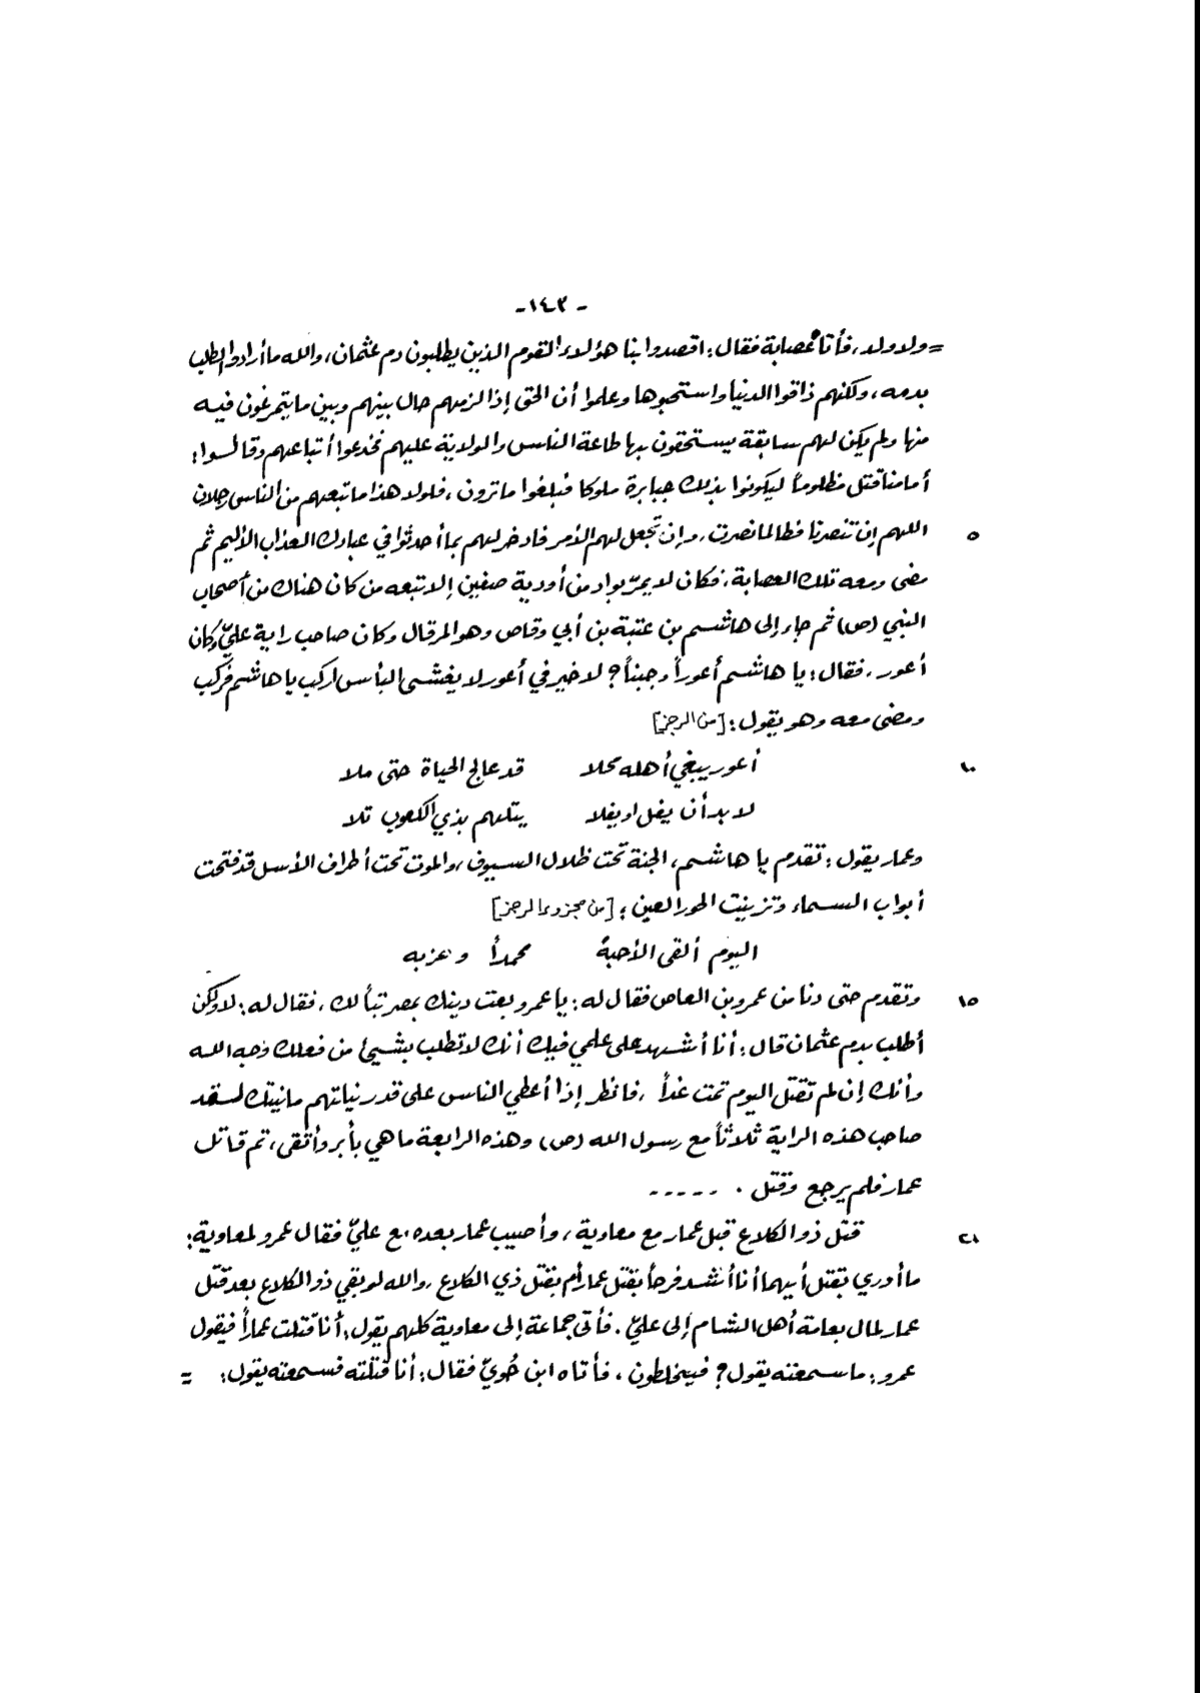 -١٤٣-
= ولا ولد، فأتاه عصابة فقال: اقصدوا بنا هؤلاء القوم الذين يطلبون دم عثمان، والله ما أرادوا الطلب
بدمه، ولكنهم ذاقوا الدنيا واستحبوها وعلموا أن الحق إذا لزمهم حال بينهم وبين ما يتمرغون فيه
منها ولم يكن لهم سابقة يستحقون بها طاعة الناس والولاية عليهم فخدعوا أتباعهم وقالوا:
أمامنا قتل مظلوماً ليكونوا بذلك جبابرة ملوكا فبلغوا ما ترون، فلولا هذا ما تبعهم من الناس رجلان
اللهم إن تنصرنا فطالما نصرت، وإن تجعل لهم الأمر فادخر لهم بما أحدثوا في عبادك العذاب الأليم ثم ٥
مضى ومعه تلك العصابة، فكان لا يمرّ بواد من أودية صفين إلا تبعه من كان هناك من أصحاب
النبي (ص) ثم جاء إلى هاشم بن عتبة بن أبي وقاص وهو المرقال وكان صاحب راية عليّ وكان
أعور، فقال: يا هاشم أعوراً وجبناً؟ لا خير في أعور لا يغشى البأس اركب يا هاشم فركب
ومضى معه وهو يقول: [من الرجز]
أعور يبغي أهله محلا قد عالج الحياة حتى ملا ١٠
لا بد أن يفل او يفلا يتلهم بذي الكعوب تلا
وعمار يقول: تقدم يا هاشم، الجنة تحت ظلال السيوف، والموت تحت أطراف الأسل قد فتحت
أبواب السماء وتزينت الحور العين: [من مجزوء الرجز]
اليوم ألقى الأحبة محمداً وحزبه
وتقدم حتى دنا من عمرو بن العاص فقال له: يا عمرو بعت دينك بمصر تباً لك، فقال له: لا ولكن ١٥
أطلب بدم عثمان قال: أنا أشهد على علمي فيك أنك لا تطلب بشيئ من فعلك وجه الله
وأنك إن لم تقتل اليوم تمت غداً، فانظر إذا أعطي الناس على قدر نياتهم ما نيتك لقد
صاحب هذه الراية ثلاثاً مع رسول الله (ص) وهذه الرابعة ما هي بأبر وأتقى، ثم قاتل
عمار فلم يرجع وقتل . -----
قتل ذو الكلاع قبل عمار مع معاوية، وأصيب عمار بعده مع عليّ فقال عمرو لمعاوية: ٢١
ما أدري بقتل أيهما أنا أشد فرحاً بقتل عمار أم بقتل ذي الكلاع، والله لو بقي ذو الكلاع بعد قتل
عمار لمال بعامة أهل الشام إلى عليّ. فأتى جماعة إلى معاوية كلهم يقول: أنا قتلت عماراً فيقول
عمرو: ما سمعته يقول؟ فيخلطون، فأتاه ابن حُويّ فقال: أنا قتلته فسمعته يقول: =